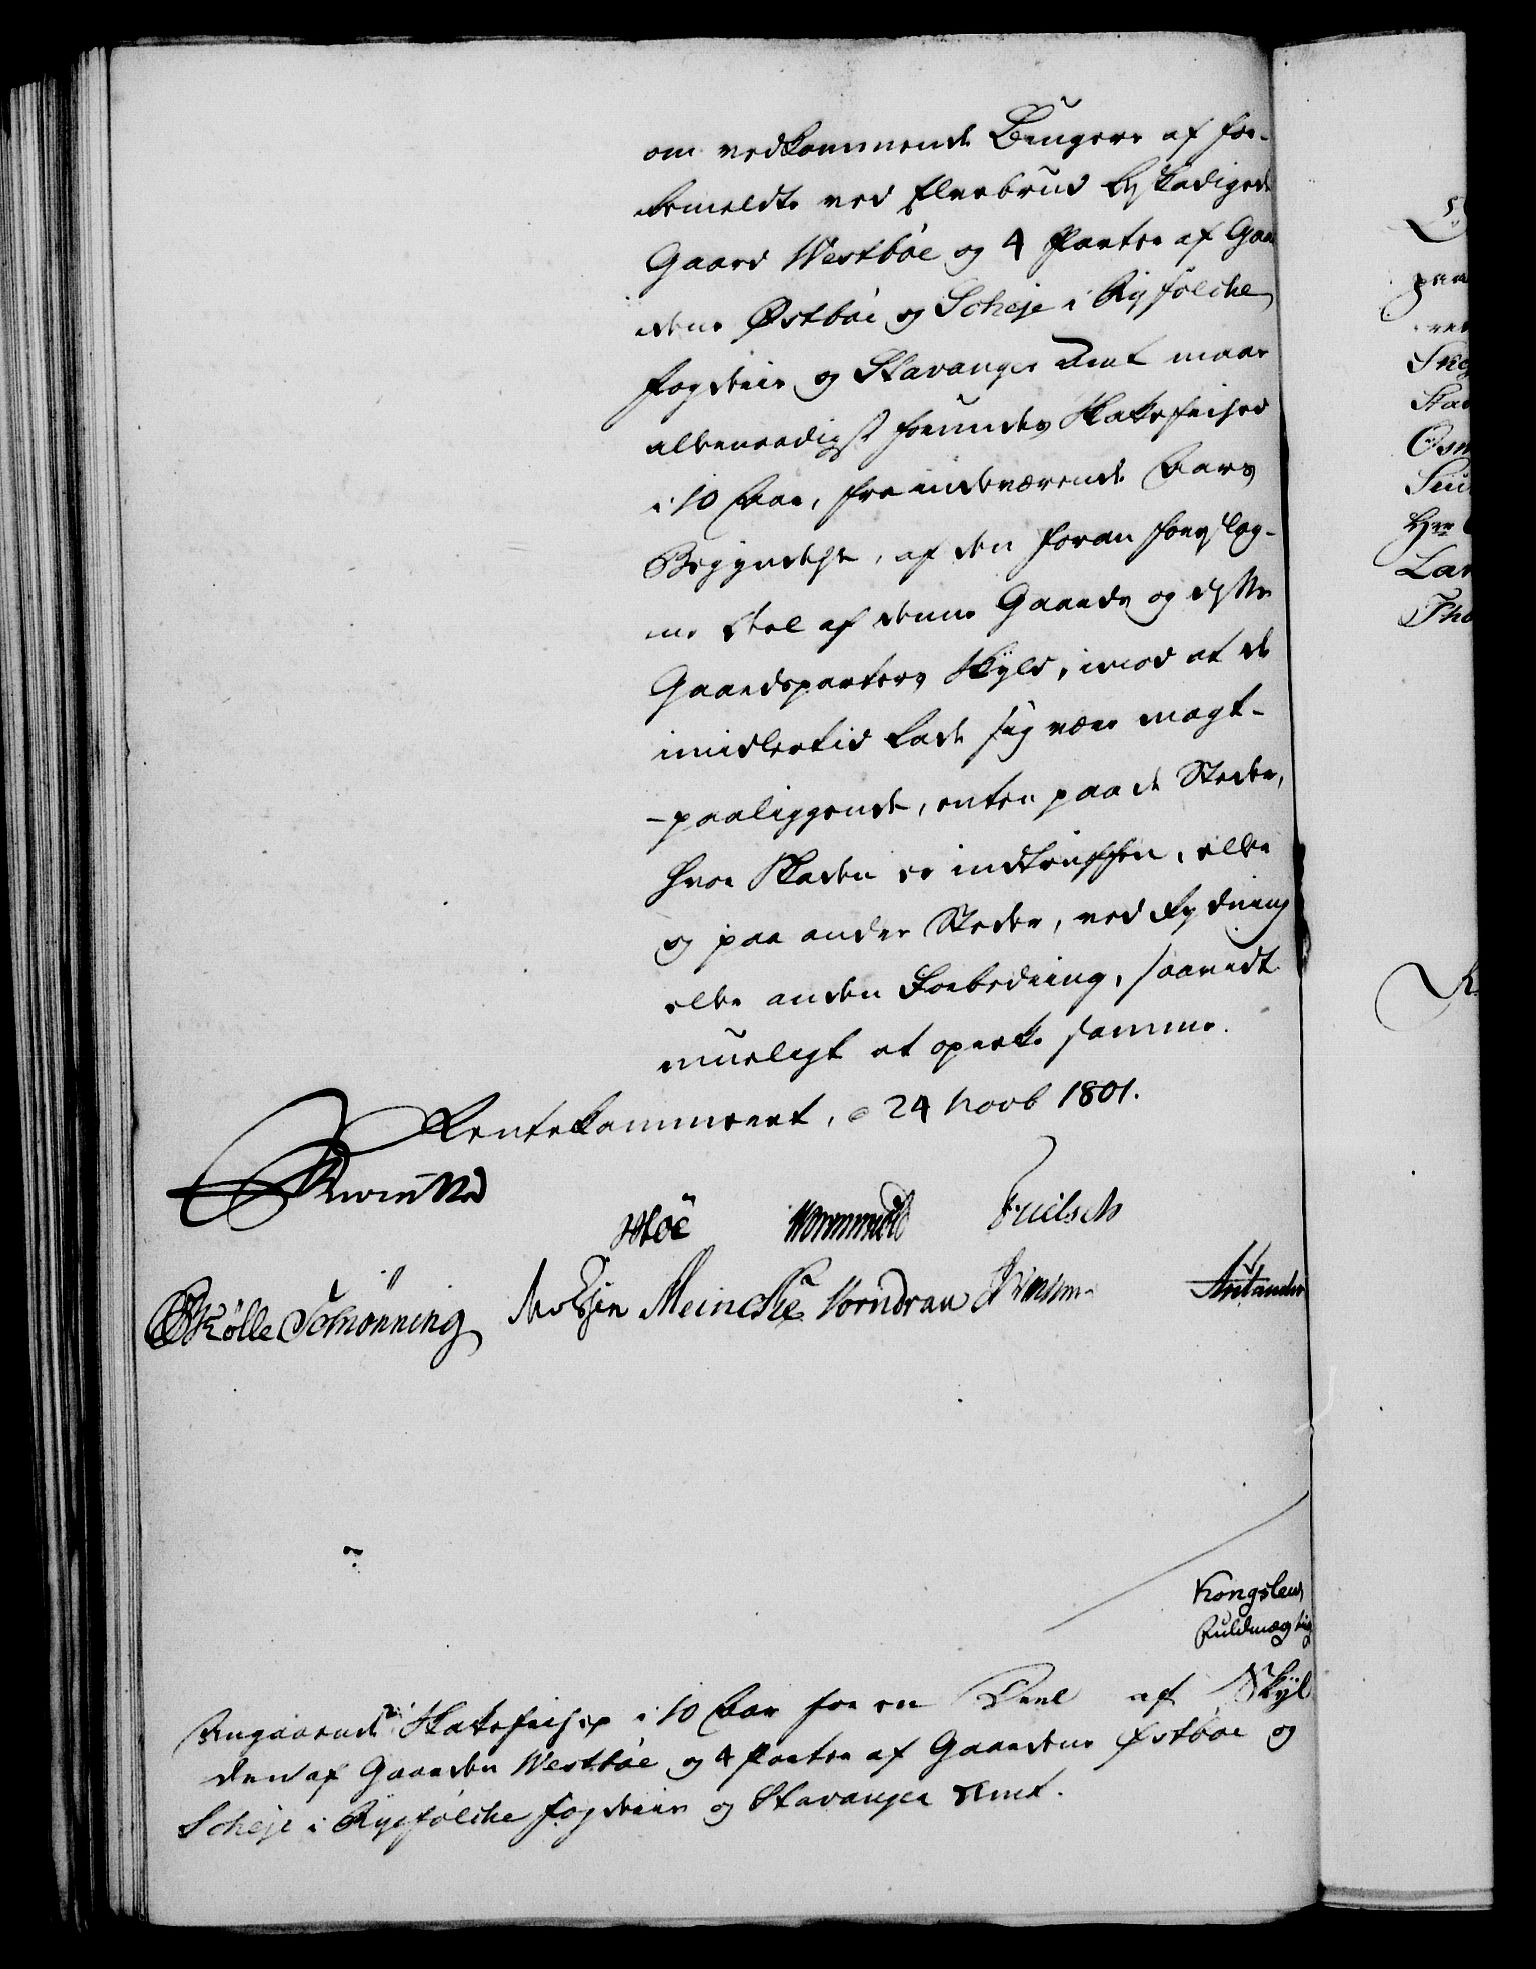 om vedkommende Brugere af for-
bemeldte ved Elvebrud beskadigede
Gaard Westbøe og 4 Parter af Gaar
dene Østbøe og Scheje i Ryfølche
Fogderie og Stavanger Amt maae
allernaadigst forundes Skattefrihed
i 10 Aar, fra indeværende Aars
Begyndelse, af den foran foreslag-
ne Deel af denne Gaards og disse
Gaardsparters Skyld, imod at de
imidlertid lade sig være magt-
-paaliggende, enten paa de Steder,
hvor Skaden er indtruffen, eller
og paa andre Steder, ved Rydning
eller anden Forbedring, saavidt
mueligt at oprette samme.
Rentekammeret, d 24 Novb 1801.
Reventlow
Wormskiold
Kølle Schønning Meincke Vorndran
Kongslew
Fuldmægtig
Angaaende Skattefrihed i 10 Aar for en Deel af Skyl
den af Gaarden Westbøe og 4 Parter af Gaardene Østbøe og
Scheje i Ryefølche Fogderie og Stavanger Amt.